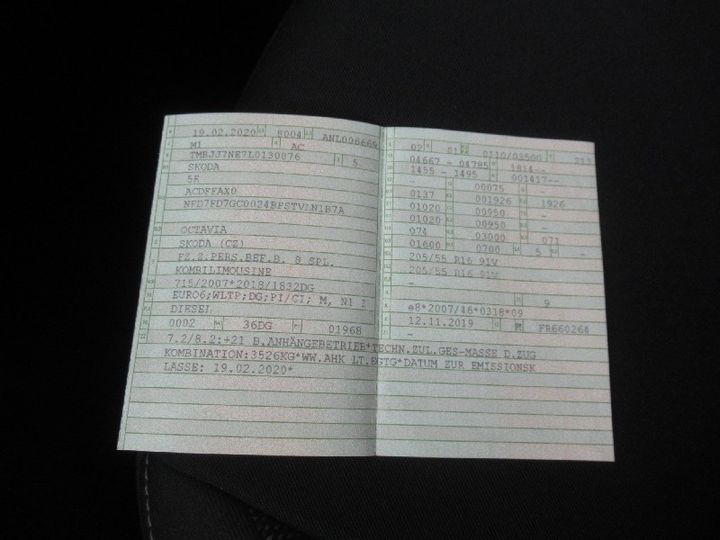 19.02.2020 8004
M1 AC
5
SKODA
5E
ACDFFAX0
OCTAVIA
SKODA (CZ)
FZ.Z.PERS.BEF.B. 8 SPL.
KOMBILIMOUSINE
715/2007*2018/1832DG
EURO6;WLTP;DG;PI/CI; M, N1 I
DIESEL
0002 36DG 01968
02 01 0110/03500
04667 - 04785 1814--
1455 - 1495 001417--
00075
0137 001926 1926
01020 00950 -
01020 00950 -
074 03000 071
01600 0700 5 -
205/55 R16 91V
205/55 R16 91V
-
9
e8*2007/46*0318*09
12.11.2019 FR660264
-
7.2/8.2:+21 B.ANHÄNGEBETRIEB*TECHN.ZUL.GES-MASSE D.ZUG
KOMBINATION:3526KG*WW.AHK LT.EGTG*DATUM ZUR EMISSIONSK
LASSE: 19.02.2020*